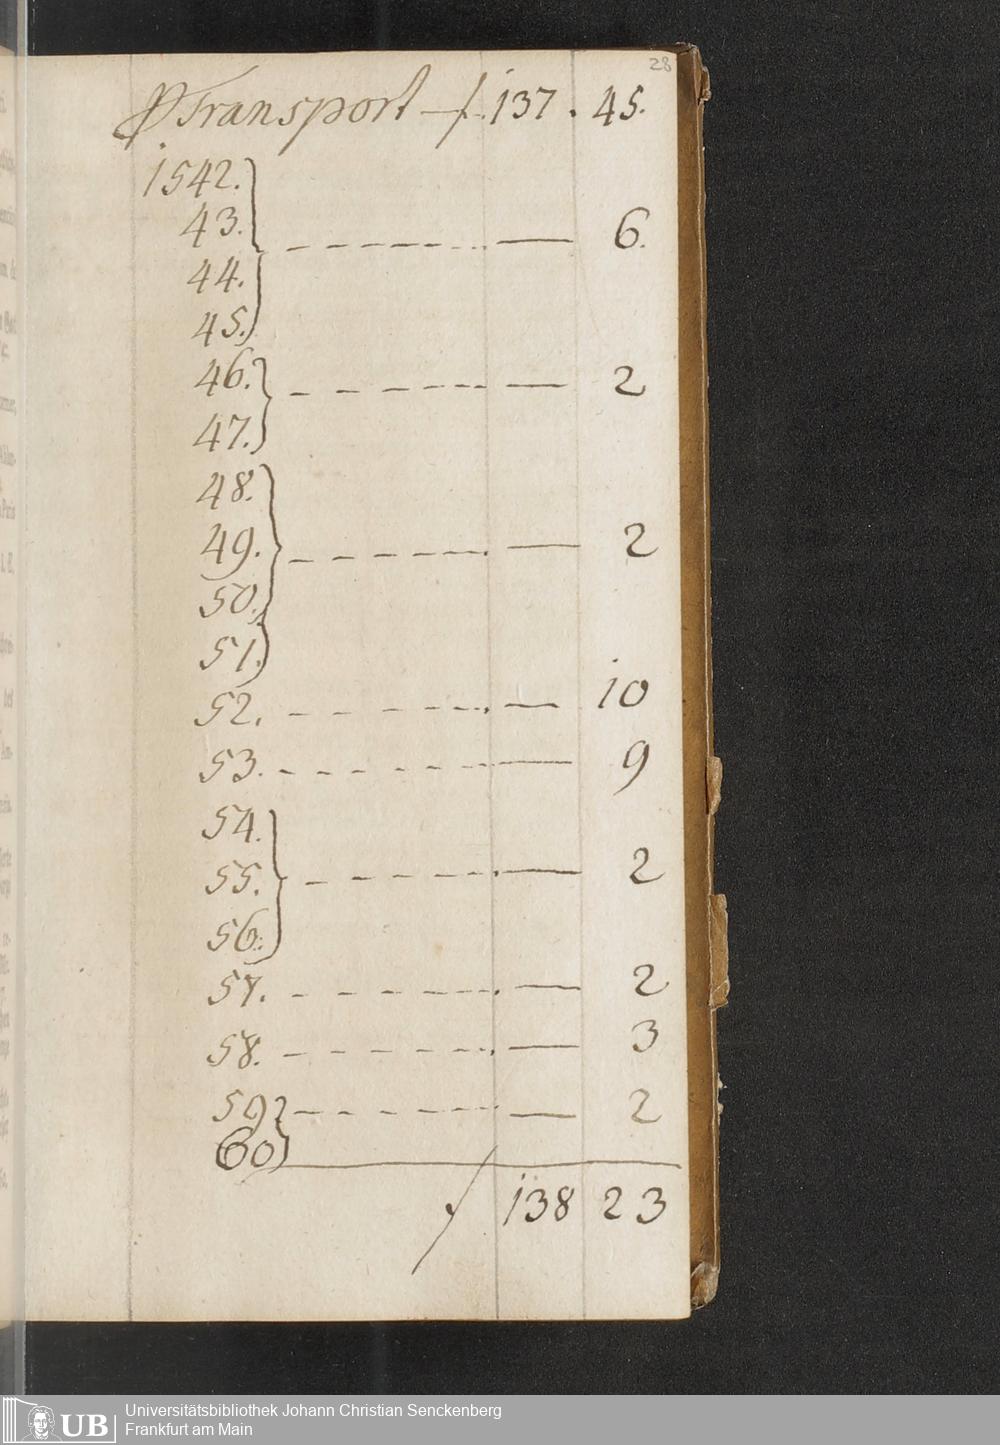 28
P Transport — f. 137. 45.
1542.
43. - - - - - — 6.
44.
45.
46. - - - - - — 2
47.
48.
49. - - - - - — 2
50.
51.
52. - - - - - — 10
53. - - - - - — 9
54.
55. - - - - - — 2
56.
57. - - - - - — 2
58. - - - - - — 3
59 - - - - - — 2
60
f 138 23
UB
Universitätsbibliothek Johann Christian Senckenberg
Frankfurt am Main